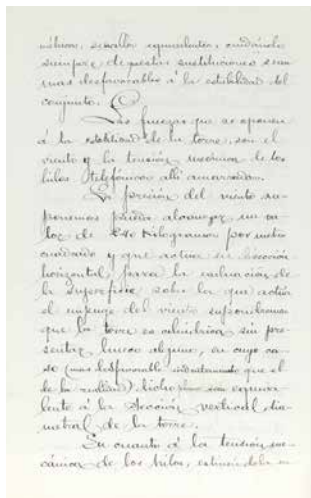 métrico, sencillos equivalentes, cuidándose
siempre de que estas sustituciones sean
mas desfavorables á la estabilidad del
conjunto.
Las fuerzas que se oponen
á la estabilidad de la torre, son el
viento y la tensión mecánica de los
hilos telefónicos alli amarrados.
La presión del viento su-
ponemos pueda alcanzar un va-
lor de Kilogramos por metro
cuadrado y que actua en dirección
horizontal, para la evaluación de
la superficie sobre la que actua
el empuje del viento supondremos
que la torre es cilindrica sin pre-
sentar hueco alguno, en cuyo ca-
so (mas desfavorable que el
de la realidad) dicho plano será equiva-
lente á la sección vertical dia-
metral de la torre.
En cuanto á la tensión me-
cánica de los hilos,